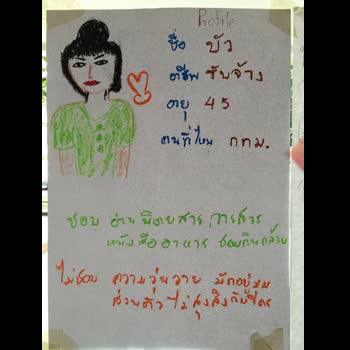 Profile
ชื่อ บัว
อาชีพ รับจ้าง
อายุ 45
คนที่ไหน กทม.
ชอบ อ่านนิตยสาร วารสาร
หนังสืออาหาร ชอบกินกล้วย
ไม่ชอบ ความวุ่นวาย มักอยู่มุม
ส่วนตัว ไม่สุงสิงกับใคร